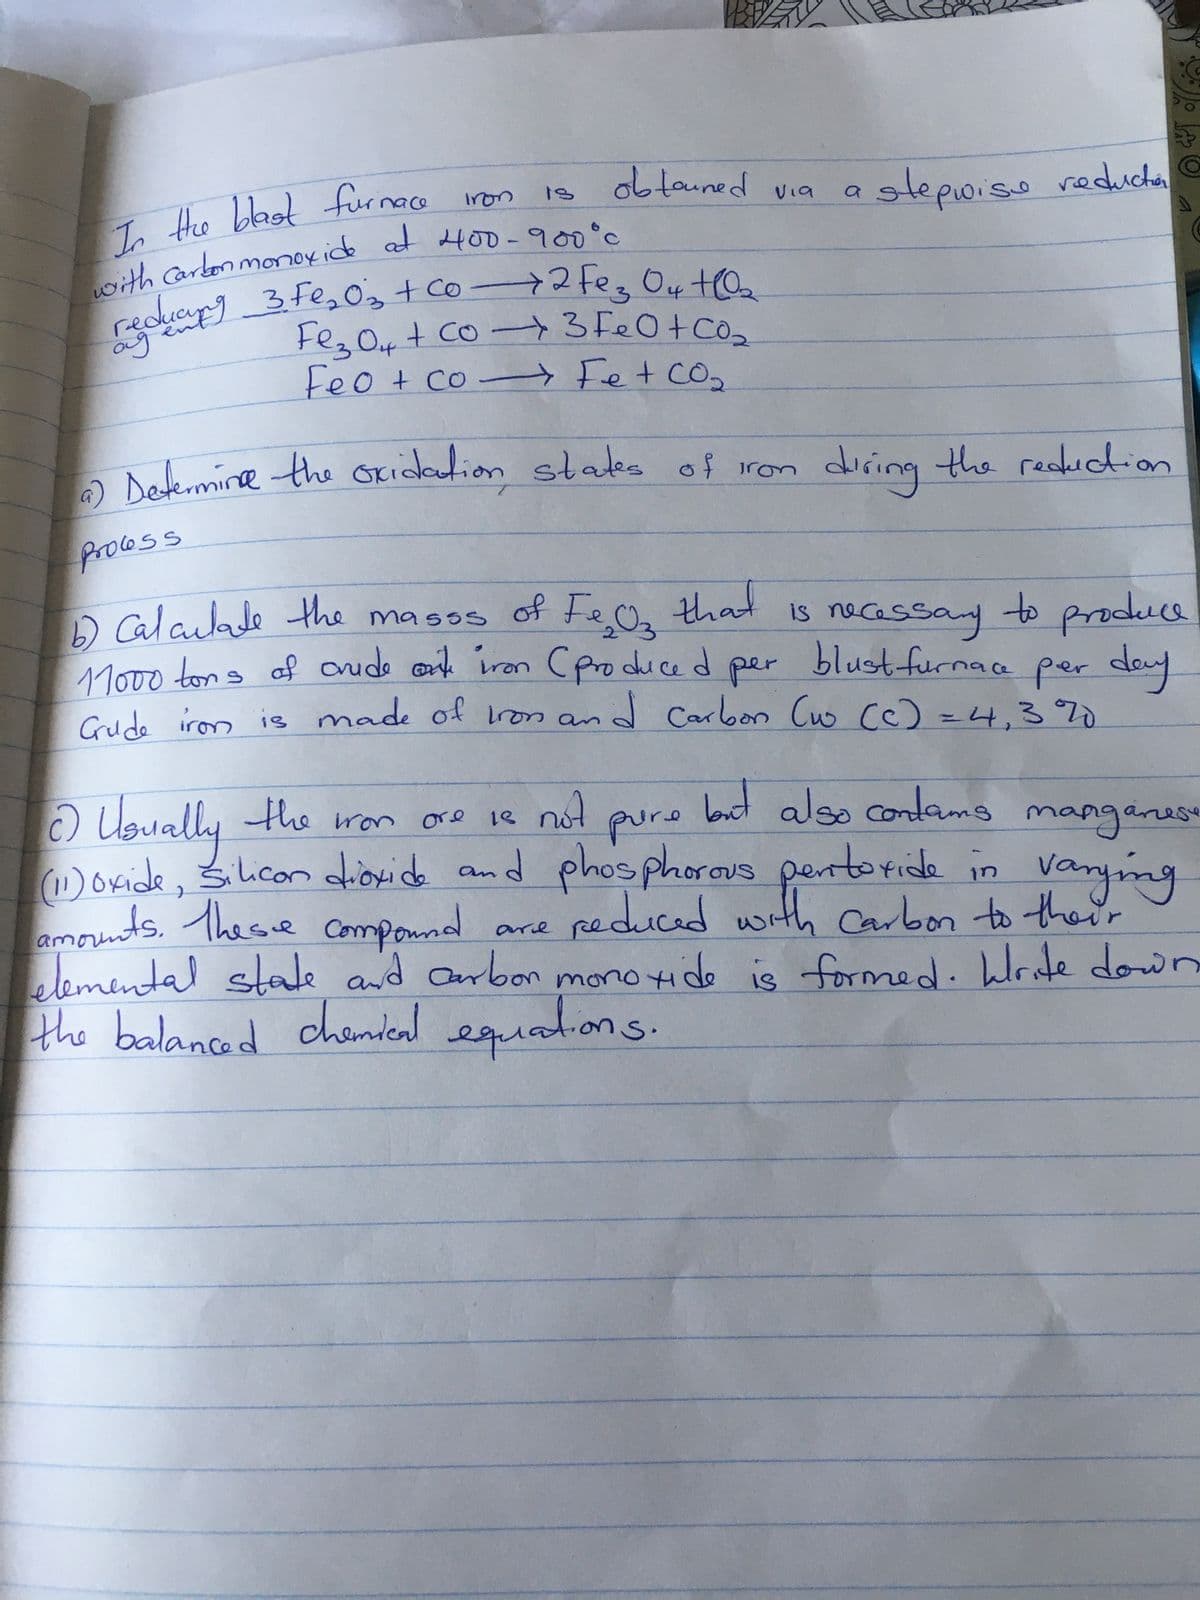 In the blast furnace iron is obtained via a stepwise reduction
with Carbon monoxide at 400-900°C
reducing agent 3 Fe₂O₃ + CO → 2 Fe₃O₄ + CO₂
Fe₃O₄ + CO → 3 FeO + CO₂
FeO + CO → Fe + CO₂
a) Determine the oxidation states of iron during the reduction
process
b) Calculate the masss of Fe₂O₃ that is necessary to produce
11000 tons of crude iron (produced per blust furnace per day
Crude iron is made of iron and Carbon (w (C) = 4,3 %
c) Usually the iron ore is not pure but also contains manganese
(II) oxide, Silicon dioxide and phosphorous pentoxide in varying
amounts. These Compound are reduced with Carbon to their
elemental state and Carbon monoxide is formed. Write down
the balanced chemical equations.